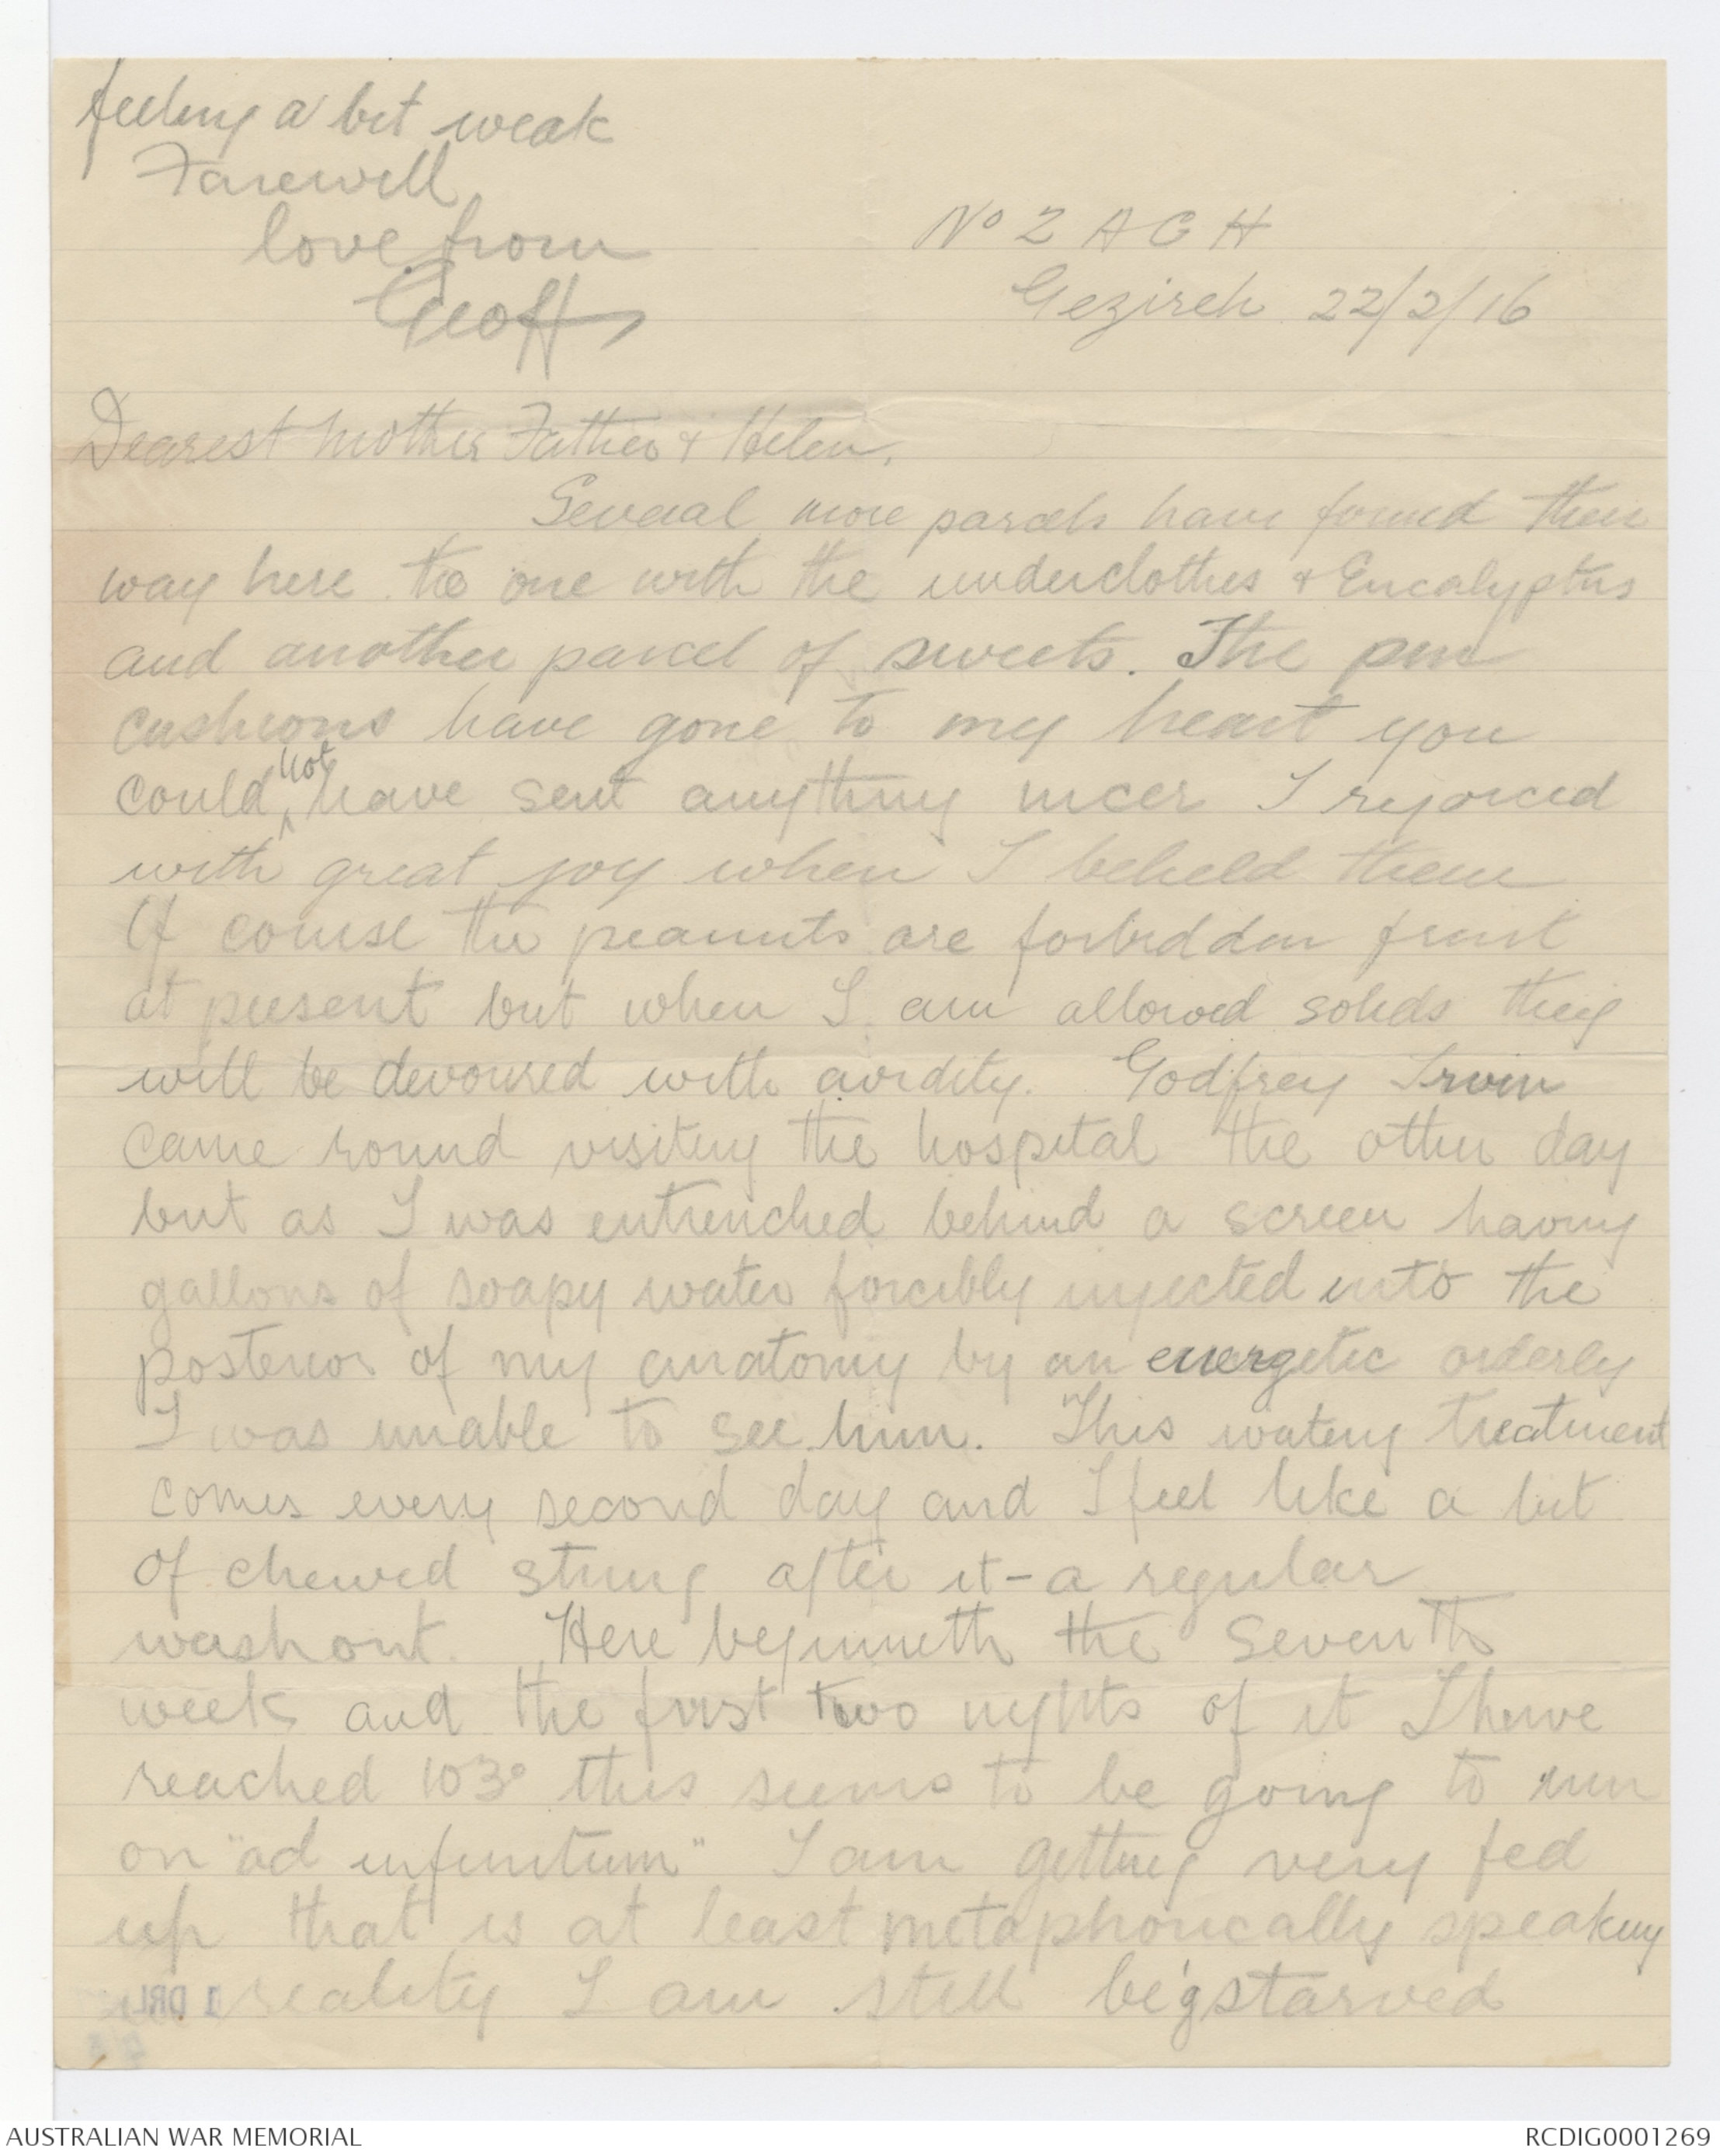 feeling a bit weak
Farewell
love from
Geoff
No 2 AGH
Gezireh 22/2/16
Dearest Mother Father & Helen,
Several more parcels have found their
way here the one with the underclothes & Eucalyptus
and another parcel of sweets. The pin
cushions have gone to my heart you
could not have sent anything nicer I rejoiced
with great joy when I beheld them
Of course the peanuts are forbidden fruit
at present but when I am allowed solids they
will be devoured with avidity. Godfrey Irwin
came round visiting the hospital the other day
but as I was entrenched behind a screen having
gallons of soapy water forcibly injected into the
posterior of my anatomy by an energetic orderly
I was unable to see him. This watery treatment
comes every second day and I feel like a bit
of chewed string after it - a regular
washout. Here beginneth the seventh
week and the first two nights of it I have
reached 103° this seems to be going to run
on "ad infinitum" I am getting very fed
up that is at least metaphorically speaking
in reality I am still being starved
1 DRL
AUSTRALIAN WAR MEMORIAL
RCDIG0001269